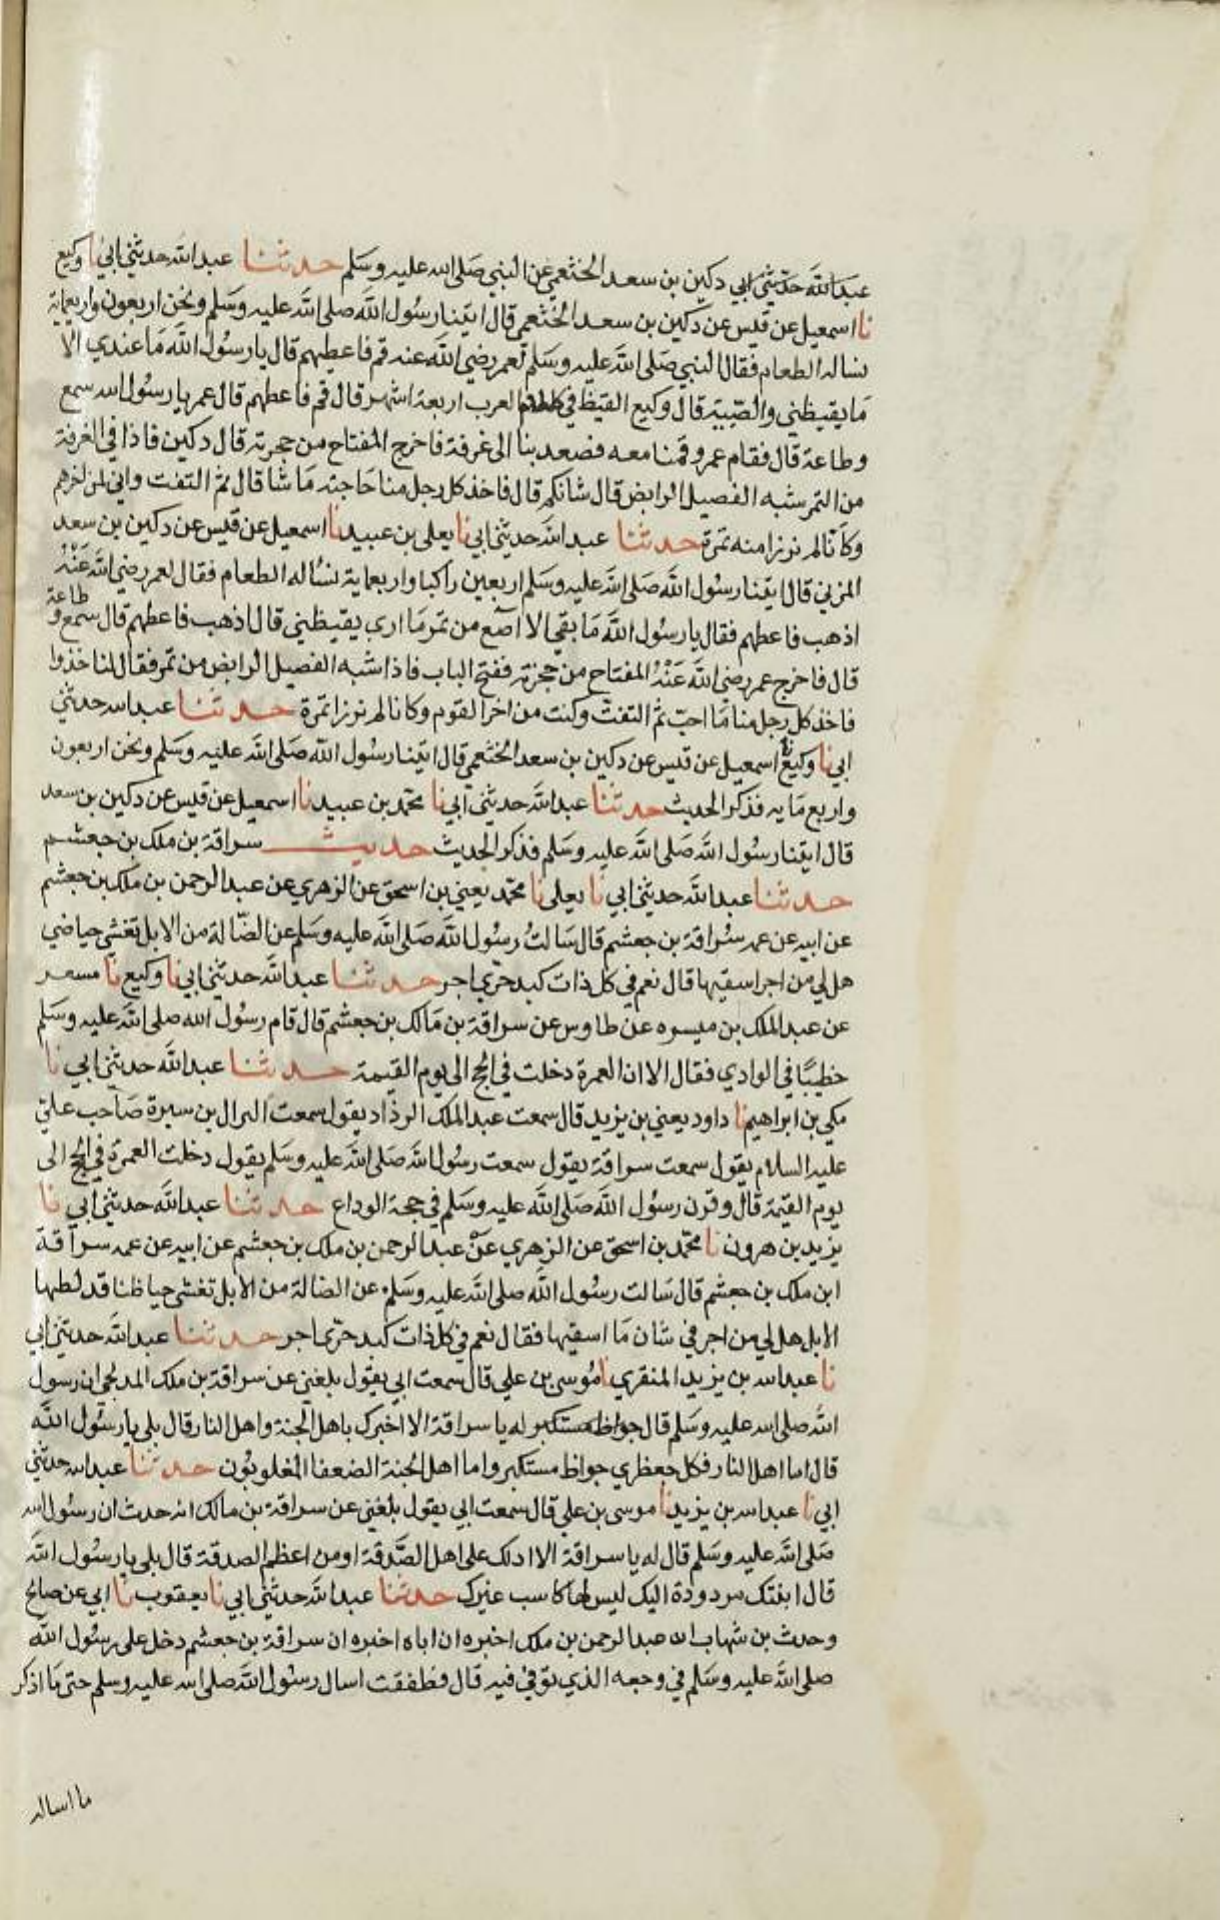 عبدالله حدثني ابي دكين بن سعد الخثعمي عن النبي صلى الله عليه وسلم حدثنا عبد الله حدثني ابي نا وكيع
نا اسمعيل عن قيس عن دكين بن سعد الخثعمي قال اتينا رسول الله صلى الله عليه وسلم ونحن اربعون واربعماية
نساله الطعام فقال النبي صلى الله عليه وسلم لعمر رضي الله عنه قم فاعطهم قال يا رسول الله ما عندي الا
ما يقيظني والصبية قال وكيع القيظ في كلام العرب اربعة اشهر قال قم فاعطهم قال عمر يا رسول الله سمع
وطاعة قال فقام عمر وقمنا معه فصعد بنا الى غرفة فاخرج المفتاح من حجرته قال دكين فاذا في الغرفة
من التمر شبه الفصيل الرابض قال شانكم قال فاخذ كل رجل منا حاجته ما شا قال ثم التفت واني لمن اخرهم
وكانا لم نرزا منه تمرة حدثنا عبد الله حدثني ابي نا يعلى بن عبيد نا اسمعيل عن قيس عن دكين بن سعد
المزني قال اتينا رسول الله صلى الله عليه وسلم اربعين راكبا واربعماية نساله الطعام فقال لعمر رضي الله عنه
اذهب فاعطهم فقال يا رسول الله ما بقي الا اصع من تمر ما ارى يقيظني قال اذهب فاعطهم قال سمع وطاعة
قال فاخرج عمر رضي الله عنه المفتاح من حجزته ففتح الباب فاذا شبه الفصيل الرابض من تمر فقال لنا خذوا
فاخذ كل رجل منا ما احب ثم التفت وكنت من اخر القوم وكانا لم نرزا تمرة حدثنا عبد الله حدثني
ابي نا وكيع نا اسمعيل عن قيس عن دكين بن سعد الخثعمي قال اتينا رسول الله صلى الله عليه وسلم ونحن اربعون
واربع مايه فذكر الحديث حدثنا عبد الله حدثني ابي نا محمد بن عبيد نا اسمعيل عن قيس عن دكين بن سعد
قال اتينا رسول الله صلى الله عليه وسلم فذكر الحديث حديث سراقة بن ملك بن جعشم
حدثنا عبد الله حدثني ابي نا يعلى نا محمد يعني بن اسحق عن الزهري عن عبد الرحمن بن ملك بن جعشم
عن ابيه عن عمه سراقة بن جعشم قال سالت رسول الله صلى الله عليه وسلم عن الضالة من الابل تغشى حياضي
هل لي من اجر اسقيها قال نعم في كل ذات كبد حرى اجر حدثنا عبد الله حدثني ابي نا وكيع نا مسعر
عن عبد الملك بن ميسره عن طاوس عن سراقة بن مالك بن جعشم قال قام رسول الله صلى الله عليه وسلم
خطيبا في الوادي فقال الا ان العمرة دخلت في الحج الى يوم القيمة حدثنا عبد الله حدثني ابي نا
مكي بن ابراهيم نا داود يعني بن يزيد قال سمعت عبد الملك الرذاد يقول سمعت النزال بن سبرة صاحب علي
عليه السلام يقول سمعت سراقة يقول سمعت رسول الله صلى الله عليه وسلم يقول دخلت العمرة في الحج الى
يوم القيمة قال وقرن رسول الله صلى الله عليه وسلم في حجة الوداع حدثنا عبد الله حدثني ابي نا
يزيد بن هرون نا محمد بن اسحق عن الزهري عن عبد الرحمن بن ملك بن جعشم عن ابيه عن عمه سراقة
ابن ملك بن جعشم قال سالت رسول الله صلى الله عليه وسلم عن الضالة من الابل تغشى حياظنا قد لطها
الابل هل لي من اجر في شان ما اسقيها فقال نعم في كل ذات كبد حرى اجر حدثنا عبد الله حدثني ابي
نا عبد الله بن يزيد المنقري نا موسى بن علي قال سمعت ابي يقول بلغني عن سراقة بن ملك المدلجي ان رسول
الله صلى الله عليه وسلم قال له يا سراقة الا اخبرك باهل الجنة واهل النار قال بلى يا رسول الله
قال اما اهل النار فكل جعظري جواظ مستكبر واما اهل الجنة الضعفا المغلوبون حدثنا عبد الله حدثني
ابي نا عبد الله بن يزيد نا موسى بن علي قال سمعت ابي يقول بلغني عن سراقة بن مالك انه حدث ان رسول الله
صلى الله عليه وسلم قال له يا سراقة الا ادلك على اهل الصدقة او من اعظم الصدقة قال بلى يا رسول الله
قال ابنتك مردودة اليك ليس لها كاسب غيرك حدثنا عبد الله حدثني ابي نا يعقوب نا ابي عن صالح
وحدث بن شهاب ان عبد الرحمن بن ملك اخبره ان اباه اخبره ان سراقة بن جعشم دخل على رسول الله
صلى الله عليه وسلم في وجعه الذي توفي فيه قال فطفقت اسال رسول الله صلى الله عليه وسلم حتى ما اذكر
ما اساله